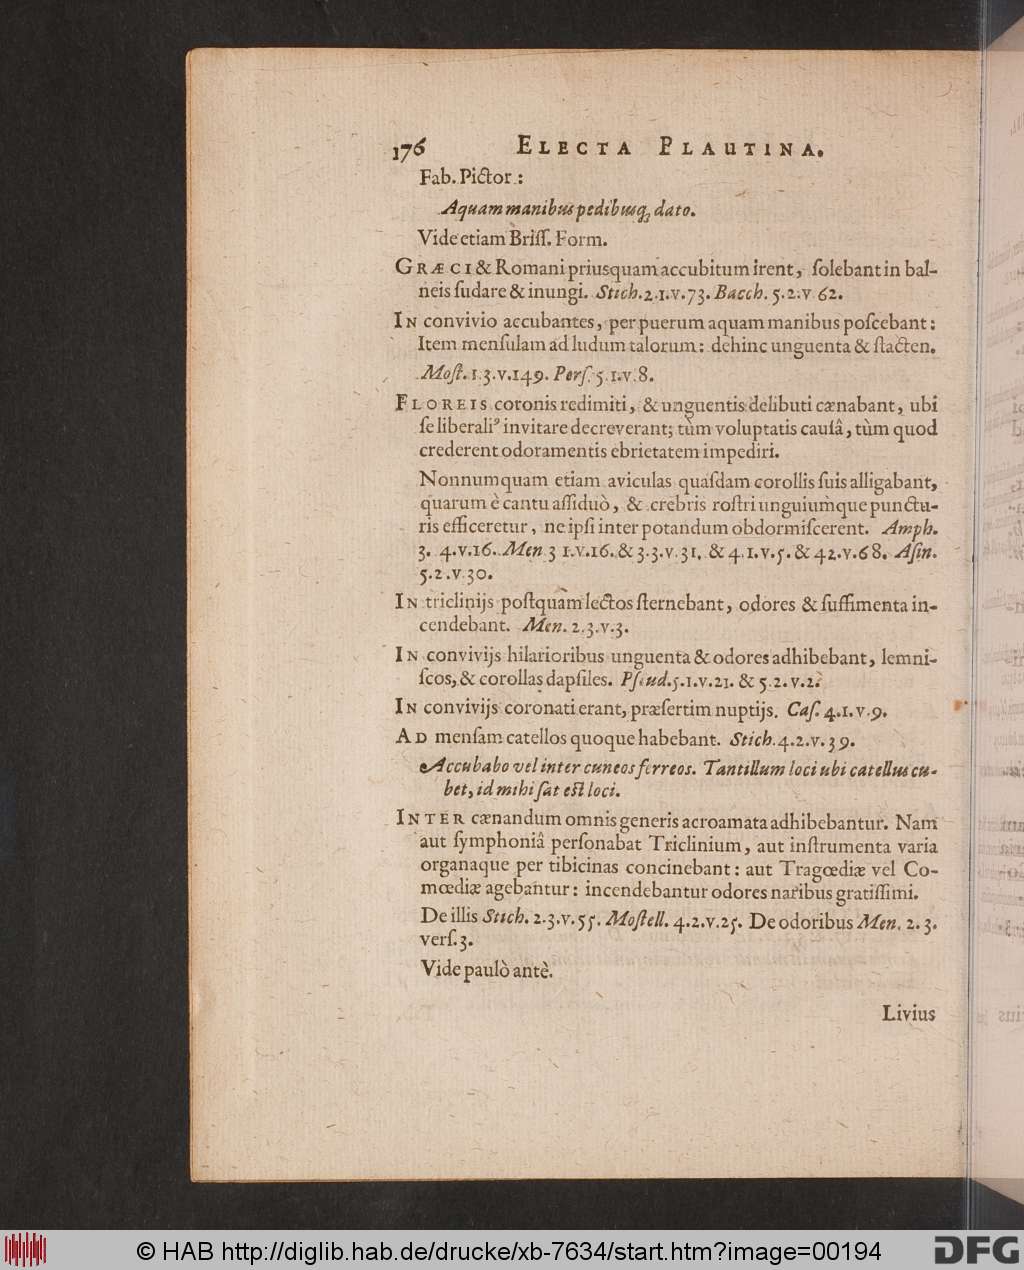 176 ELECTA PLAUTINA.
Fab. Pictor :
Aquam manibus pedibusq; dato.
Vide etiam Briſſ. Form.
GRÆCI & Romani priusquam accubitum irent, ſolebant in bal-
neis ſudare & inungi. Stich. 2.1.v.73. Bacch. 5.2.v.62.
IN convivio accubantes, per puerum aquam manibus poſcebant:
Item menſulam ad ludum talorum: dehinc unguenta & ſtacten.
Moſt. 1.3.v.149. Perſ. 5.1.v.8.
FLOREIS coronis redimiti, & unguentis delibuti cænabant, ubi
ſe liberaliꝰ invitare decreverant; tùm voluptatis cauſâ, tùm quod
crederent odoramentis ebrietatem impediri.
Nonnumquam etiam aviculas quaſdam corollis ſuis alligabant,
quarum è cantu aſſiduò, & crebris roſtri unguiumque punctu-
ris efficeretur, ne ipſi inter potandum obdormiſcerent. Amph.
3. 4.v.16. Men. 3 1.v.16. & 3.3.v.31. & 4.1.v.5. & 42.v.68. Aſin.
5.2.v.30.
IN triclinijs poſtquam lectos ſternebant, odores & ſuffimenta in-
cendebant. Men. 2.3.v.3.
IN convivijs hilarioribus unguenta & odores adhibebant, lemni-
ſcos, & corollas dapſiles. Pſeud. 5.1.v.21. & 5.2.v.2.
IN convivijs coronati erant, præſertim nuptijs. Caſ. 4.1.v.9.
AD menſam catellos quoque habebant. Stich. 4.2.v.39.
Accubabo vel inter cuneos ferreos. Tantillum loci ubi catellus cu-
bet, id mihi ſat eſt loci.
INTER cænandum omnis generis acroamata adhibebantur. Nam
aut ſymphoniâ perſonabat Triclinium, aut inſtrumenta varia
organaque per tibicinas concinebant: aut Tragœdiæ vel Co-
mœdiæ agebantur: incendebantur odores naribus gratiſſimi.
De illis Stich. 2.3.v.55. Moſtell. 4.2.v.25. De odoribus Men. 2. 3.
verſ. 3.
Vide paulò antè.
Livius
© HAB http://diglib.hab.de/drucke/xb-7634/start.htm?image=00194
DFG